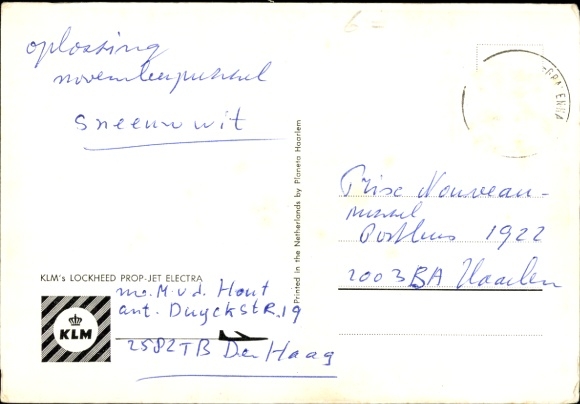 6 -
oplossing
novemberpuzzel
Sneeuwwit
Printed in the Netherlands by Planeta Haarlem
-GRAVENHA
Prise Nouveau-
puzzel
Postbus 1922
2003BA Haarlem
KLM's LOCKHEED PROP-JET ELECTRA
KLM
M.v.d. Hout
ant. Duyckstr. 19
2582TB Den Haag